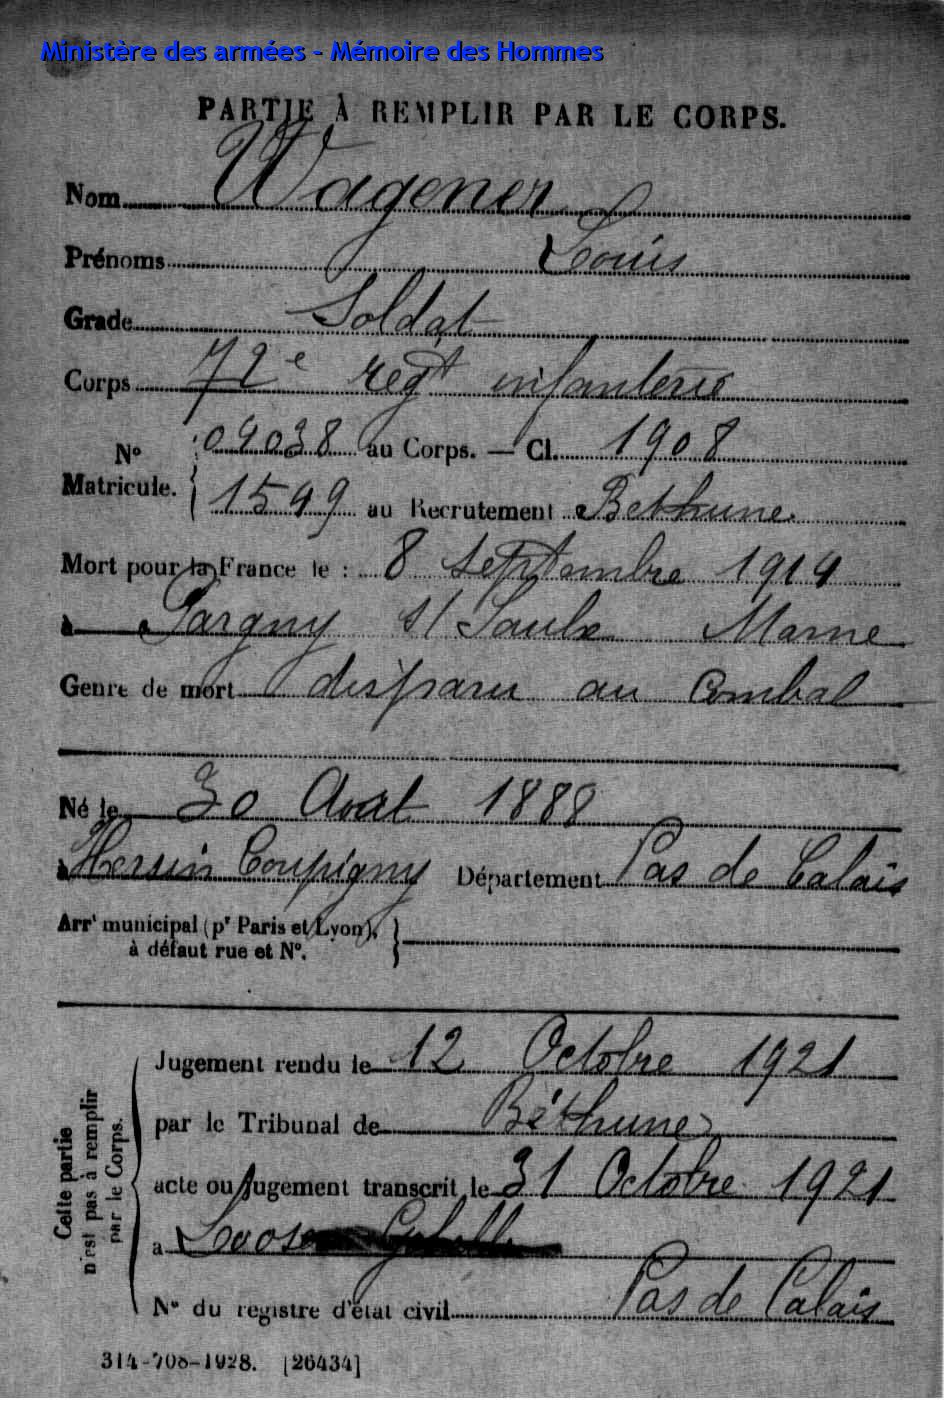 Ministère des armées - Mémoire des Hommes
PARTIE À REMPLIR PAR LE CORPS.
Nom Wagener
Prénoms Louis
Grade Soldat
Corps 72e regt infanterie
No 09038 au Corps. — Cl. 1908
Matricule. 1599 au Recrutement Bethune.
Mort pour la France le : 8 septembre 1914
à Pargny s/ Saulx Marne
Genre de mort disparu au Combat
Né le 30 Août 1888
à Hersin Coupigny Département Pas de Calais
Arrt municipal (pr Paris et Lyon),
à défaut rue et No.
Cette partie
n'est pas à remplir
par le Corps.
Jugement rendu le 12 Octobre 1921
par le Tribunal de Béthune
acte ou jugement transcrit le 31 Octobre 1921
à Loos
No du registre d'état civil Pas de Calais
314-708-1928. [26434]